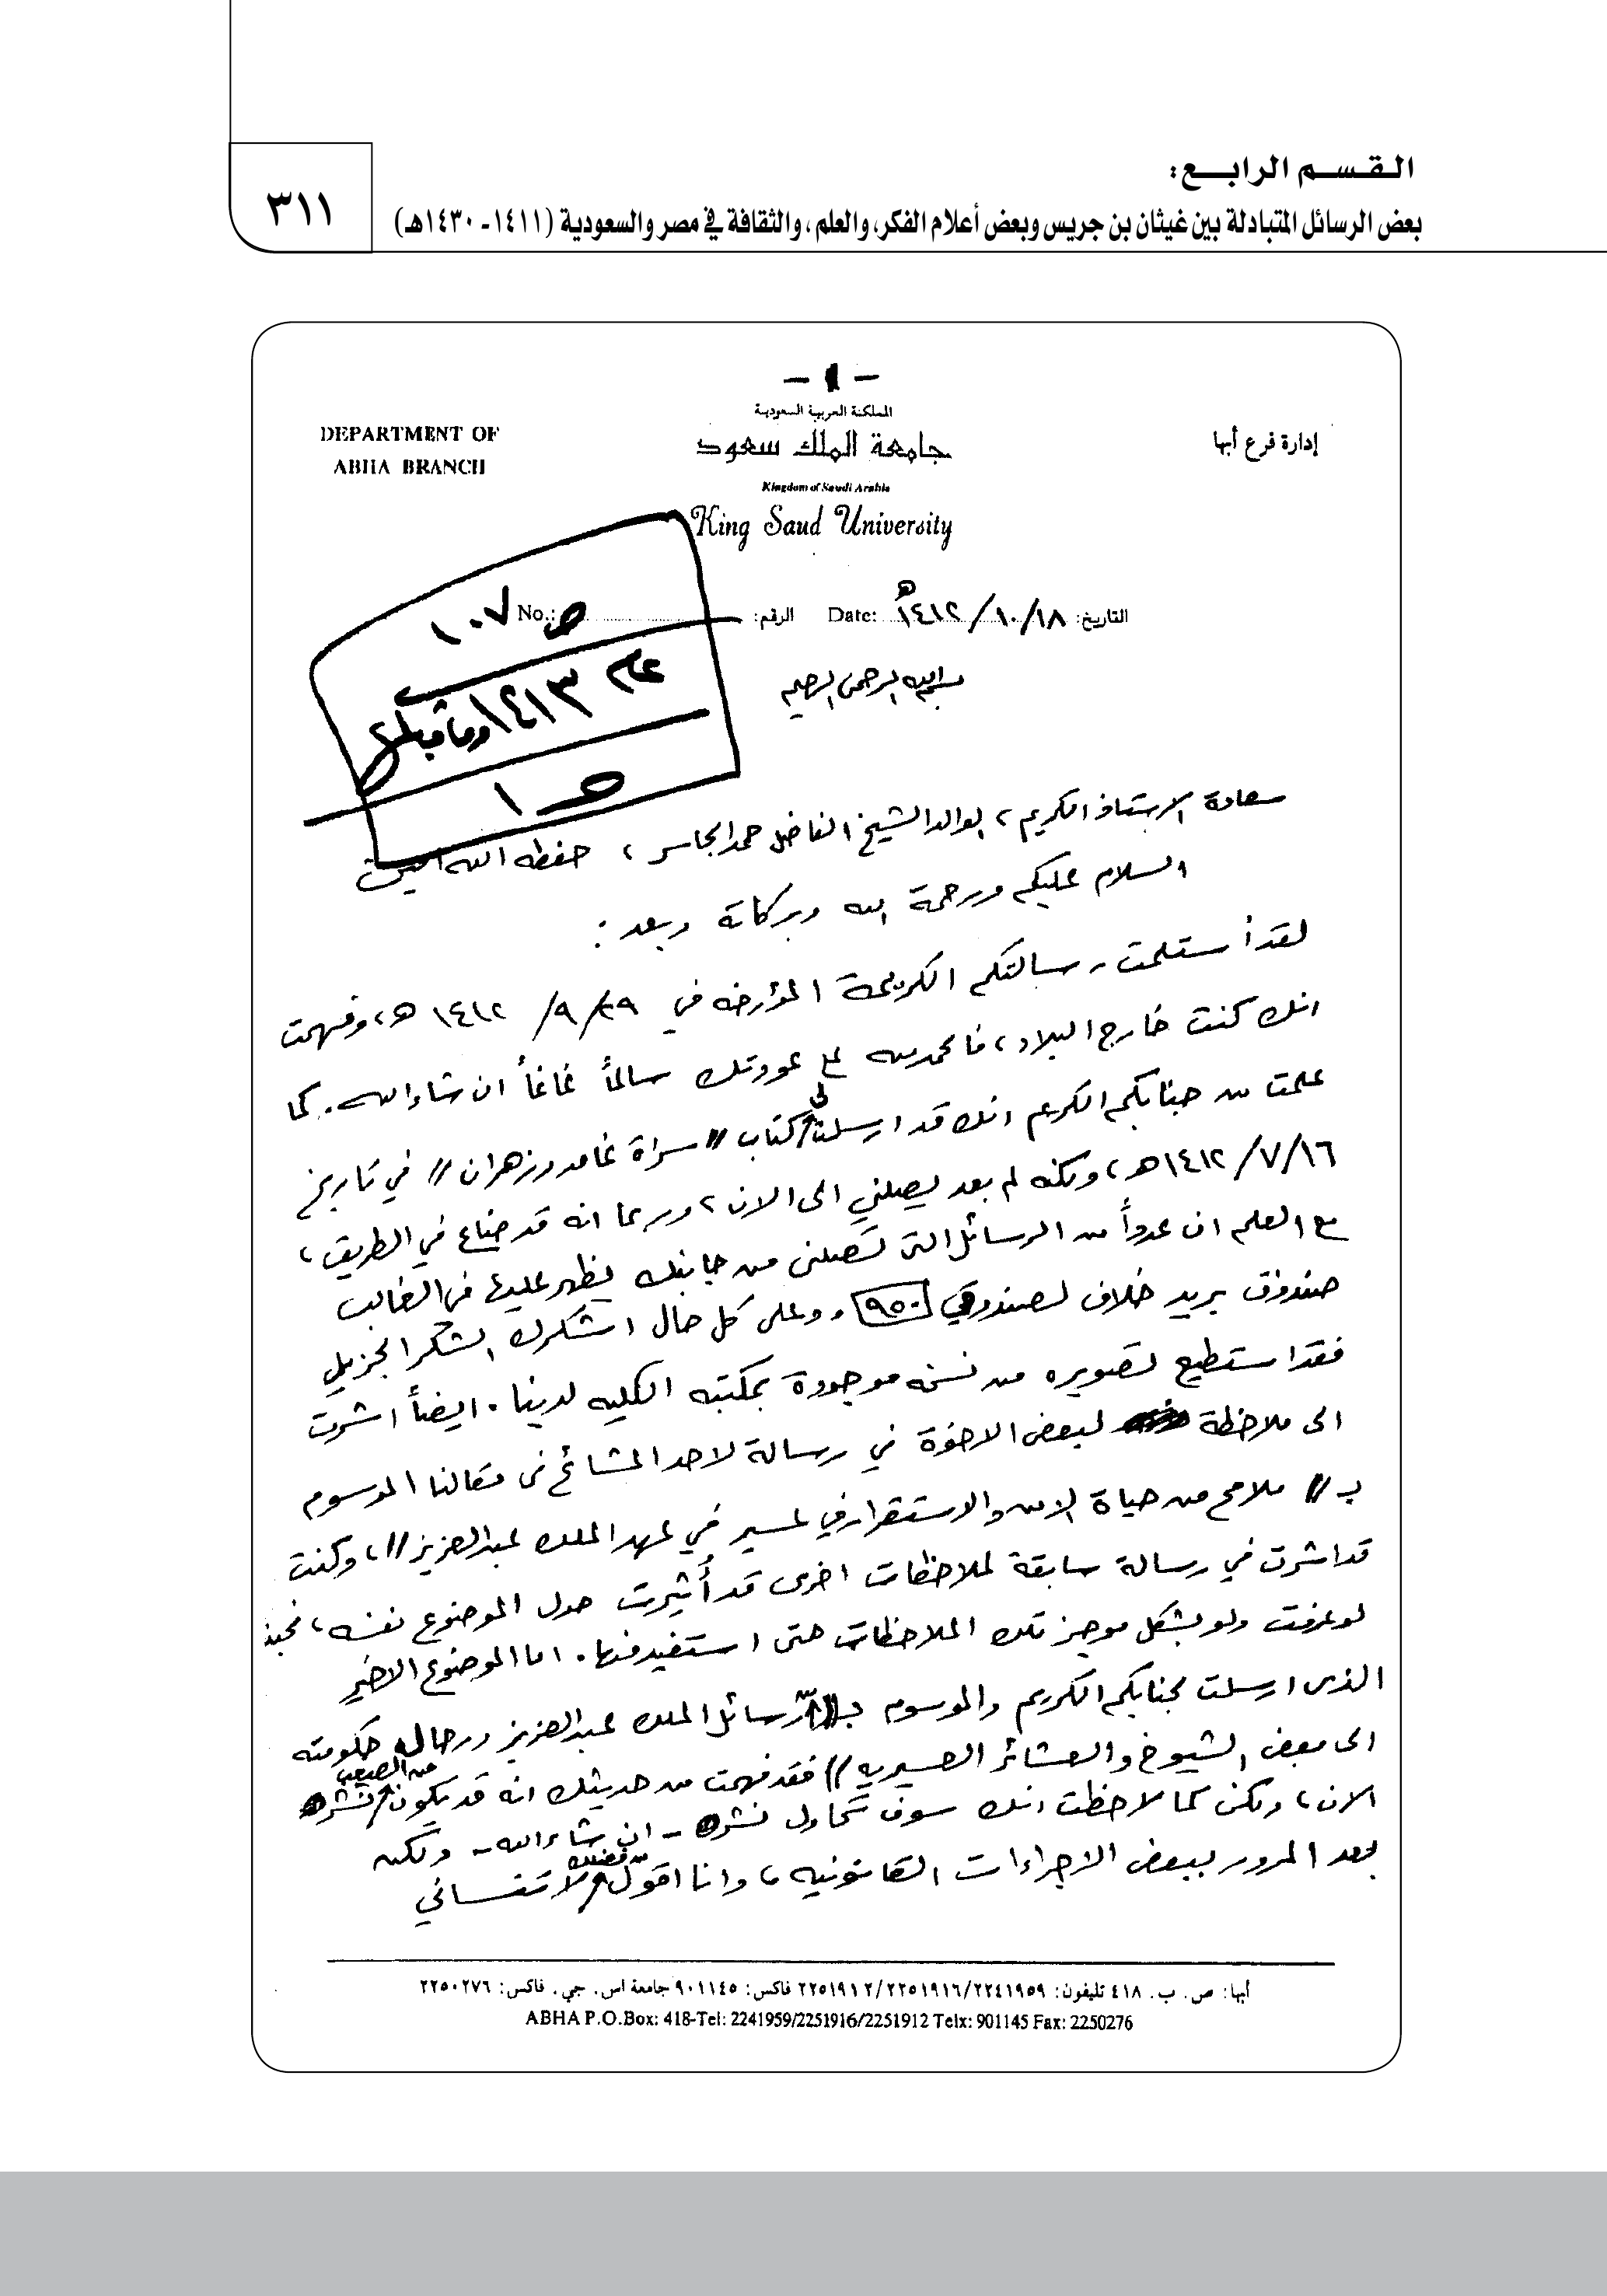 القسم الرابع:
بعض الرسائل المتبادلة بين غيثان بن جريس وبعض أعلام الفكر، والعلم، والثقافة في مصر والسعودية (١٤١١ـ ١٤٣٠هـ)
٣١١
- ١ -
المملكة العربية السعودية
جامعة الملك سعود
Kingdom of Saudi Arabia
King Saud University
إدارة فرع أبها
DEPARTMENT OF
ABHA BRANCH
التاريخ: ١٤١٢/١٠/١٨هـ Date: الرقم: No.:
ص ١٠٧
عام ١٤١٣ وما قبلها
ص ١
بسم الله الرحمن الرحيم
سعادة الاستاذ الكريم، الوالد الشيخ الفاضل حمد الجاسر، حفظه الله آمين
السلام عليكم ورحمة الله وبركاته وبعد:
لقد أستلمت رسالتكم الكريمة المؤرخه في ٢٩/ ٩/ ١٤١٢هـ، وفهمت
انك كنت خارج البلاد، فالحمدلله على عودتك سالماً غانماً ان شاء الله. كما
علمت من جنابكم الكريم انك قد ارسلت لي كتاب "سراة غامد وزهران" في تاريخ
١٤١٢/٧/١٦هـ، ولكنه لم بعد يصلني الى الان، وربما انه قد ضاع في الطريق،
مع العلم ان عدداً من الرسائل التي تصلني من جانبك يظهر عليها في الغالب
صندوق بريد خلاف لصندوقي ٩٥٠، وعلى كل حال اشكرك الشكر الجزيل
فقد استطيع تصويره من نسخه موجودة بمكتبه الكليه لدينا. ايضاً اشرت
الى ملاحظة لبعض الاخوة في رسالة لاحد المشائخ في مقالنا الموسوم
بـ "ملامح من حياة الامن والاستقرار في عسير في عهد الملك عبدالعزيز"، وكنت
قد اشرت في رسالة سابقة لملاحظات اخرى قد أُثيرت حول الموضوع نفسه، فحبذ
لو عرفت ولو بشكل موجز تلك الملاحظات حتى استفيد منها. اما الموضوع الاخير
الذي ارسلت لجنابكم الكريم والموسوم بـ "رسائل الملك عبدالعزيز ورجال حكومته
الى بعض الشيوخ والعشائر العسيريه" فقد فهمت من حديثك انه قد يكون من الصعب نشره
الان، ولكن كما لاحظت انك سوف تحاول نشره - ان شاء الله - ولكن
بعد المرور ببعض الاجراءات القانونيه، وانا اقول من فضلك لا تنساني
أبها: ص. ب. ٤١٨ تليفون: ٢٢٤١٩٥٩/٢٢٥١٩١٦/٢٢٥١٩١٢ فاكس: ٩٠١١٤٥ جامعة اس. جي. فاكس: ٢٢٥٠٢٧٦
ABHA P.O.Box: 418-Tel: 2241959/2251916/2251912 Telx: 901145 Fax: 2250276